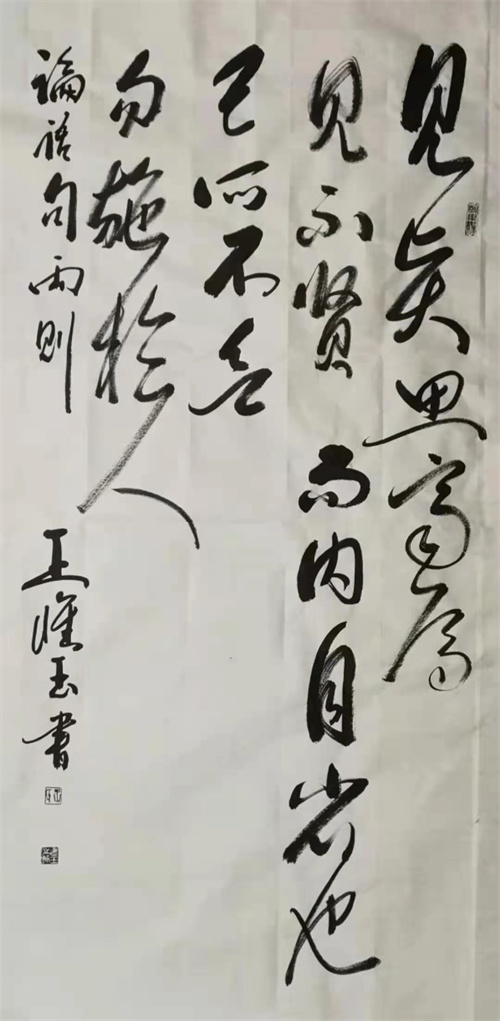 見賢思齊焉
見不賢而内自省也
己所不欲
勿施於人
論語句兩則
王惟玉書